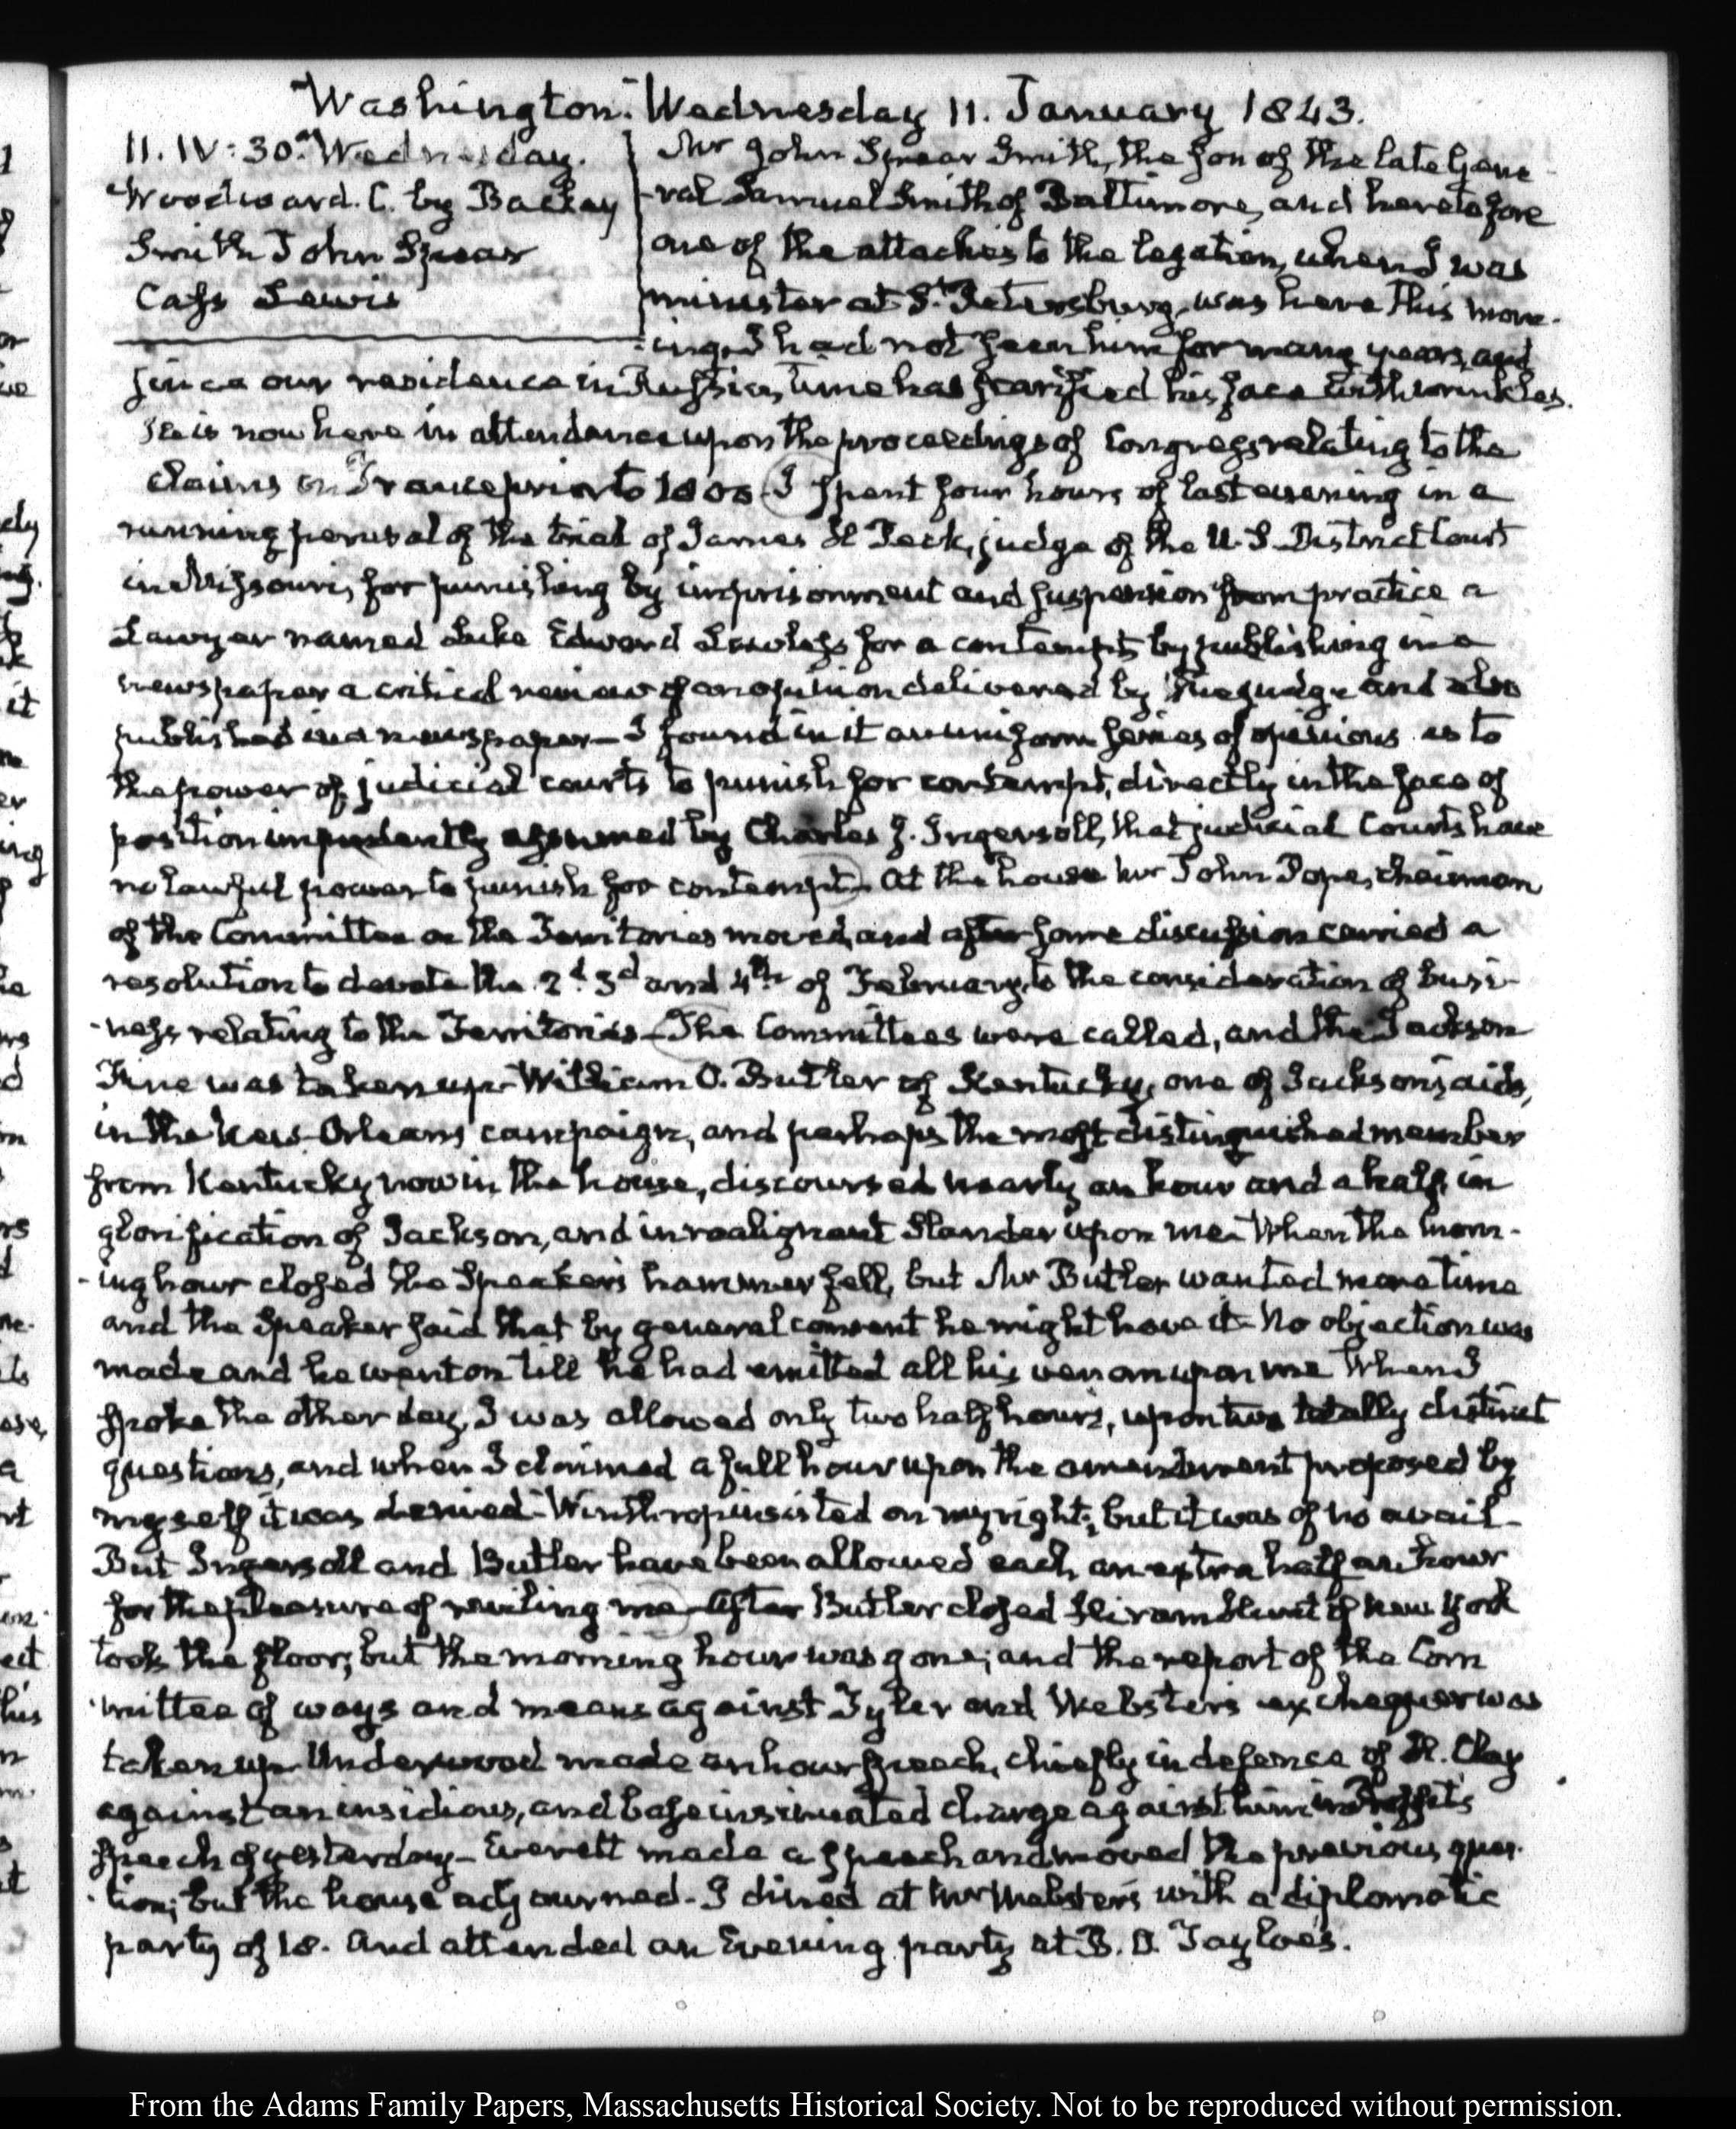 Washington. Wednesday 11. January 1843.
11. IV: 30. Wednesday.
Woodward. C. by
Smith John Spear
Cass Lewis
Mr John Spear Smith, the son of the late Gene-
-ral Samuel Smith of Baltimore, and heretofore
one of the attachés to the legation, when I was
minister at St. Petersburg, was here this morn-
-ing. I had not seen him for many years, and
since our residence in Russia, time has scarified his face with wrinkles.
He is now here in attendance upon the proceedings of Congress relating to the
claims on France prior to 1800 - I spent four hours of last evening in a
running perusal of the trial of James H Peck, judge of the U. S. District Court
in Missouri, for punishing by imprisonment and suspension from practice a
Lawyer named Luke Edward Lawless for a contempt by publishing in a
newspaper a critical review of an opinion delivered by the judge and also
published in a newspaper - I found in it an uniform series of opinions as to
the power of judicial courts to punish for contempt, directly in the face of
position impudently assumed by Charles J. Ingersoll, that judicial Courts have
no lawful power to punish for contempt - At the house Mr John Pope, chairman
of the Committee on the Territories moved, and after some discussion carried a
resolution to devote the 2d. 3d and 4th of February, to the consideration of busi-
-ness relating to the Territories - The Committees were called, and the Jackson
Fine was taken up - William O. Butler of Kentucky, one of Jackson's aids,
in the New-Orleans campaign, and perhaps the most distinguished member
from Kentucky now in the house, discoursed nearly an hour and a half, in
glorification of Jackson, and in malignant slander upon me - When the morn-
-ing hour closed the Speaker's hammer fell, but Mr Butler wanted more time
and the Speaker said that by general consent he might have it - No objection was
made and he went on till he had emitted all his venom upon me When I
spoke the other day, I was allowed only two half hours, upon two totally distinct
questions, and when I claimed a full hour upon the amendment proposed by
myself it was denied - Winthrop insisted on my right; but it was of no avail -
But Ingersoll and Butler have been allowed each, an extra half an hour
for the pleasure of reviling me - After Butler closed Hiram Hunt of New York
took the floor; but the morning hour was gone; and the report of the Com
-mittee of ways and means against Tyler and Webster's exchequer was
taken up - Underwood made an hour speech, chiefly in defence of H. Clay
against an insidious, and base insinuated charge against him in Proffit's
speech of yesterday - Everett made a speech and moved the previous ques-
-tion; but the house adjourned - I dined at Mr Webster's with a diplomatic
party of 18. And attended an Evening party at B. O. Tayloe's.
From the Adams Family Papers, Massachusetts Historical Society. Not to be reproduced without permission.